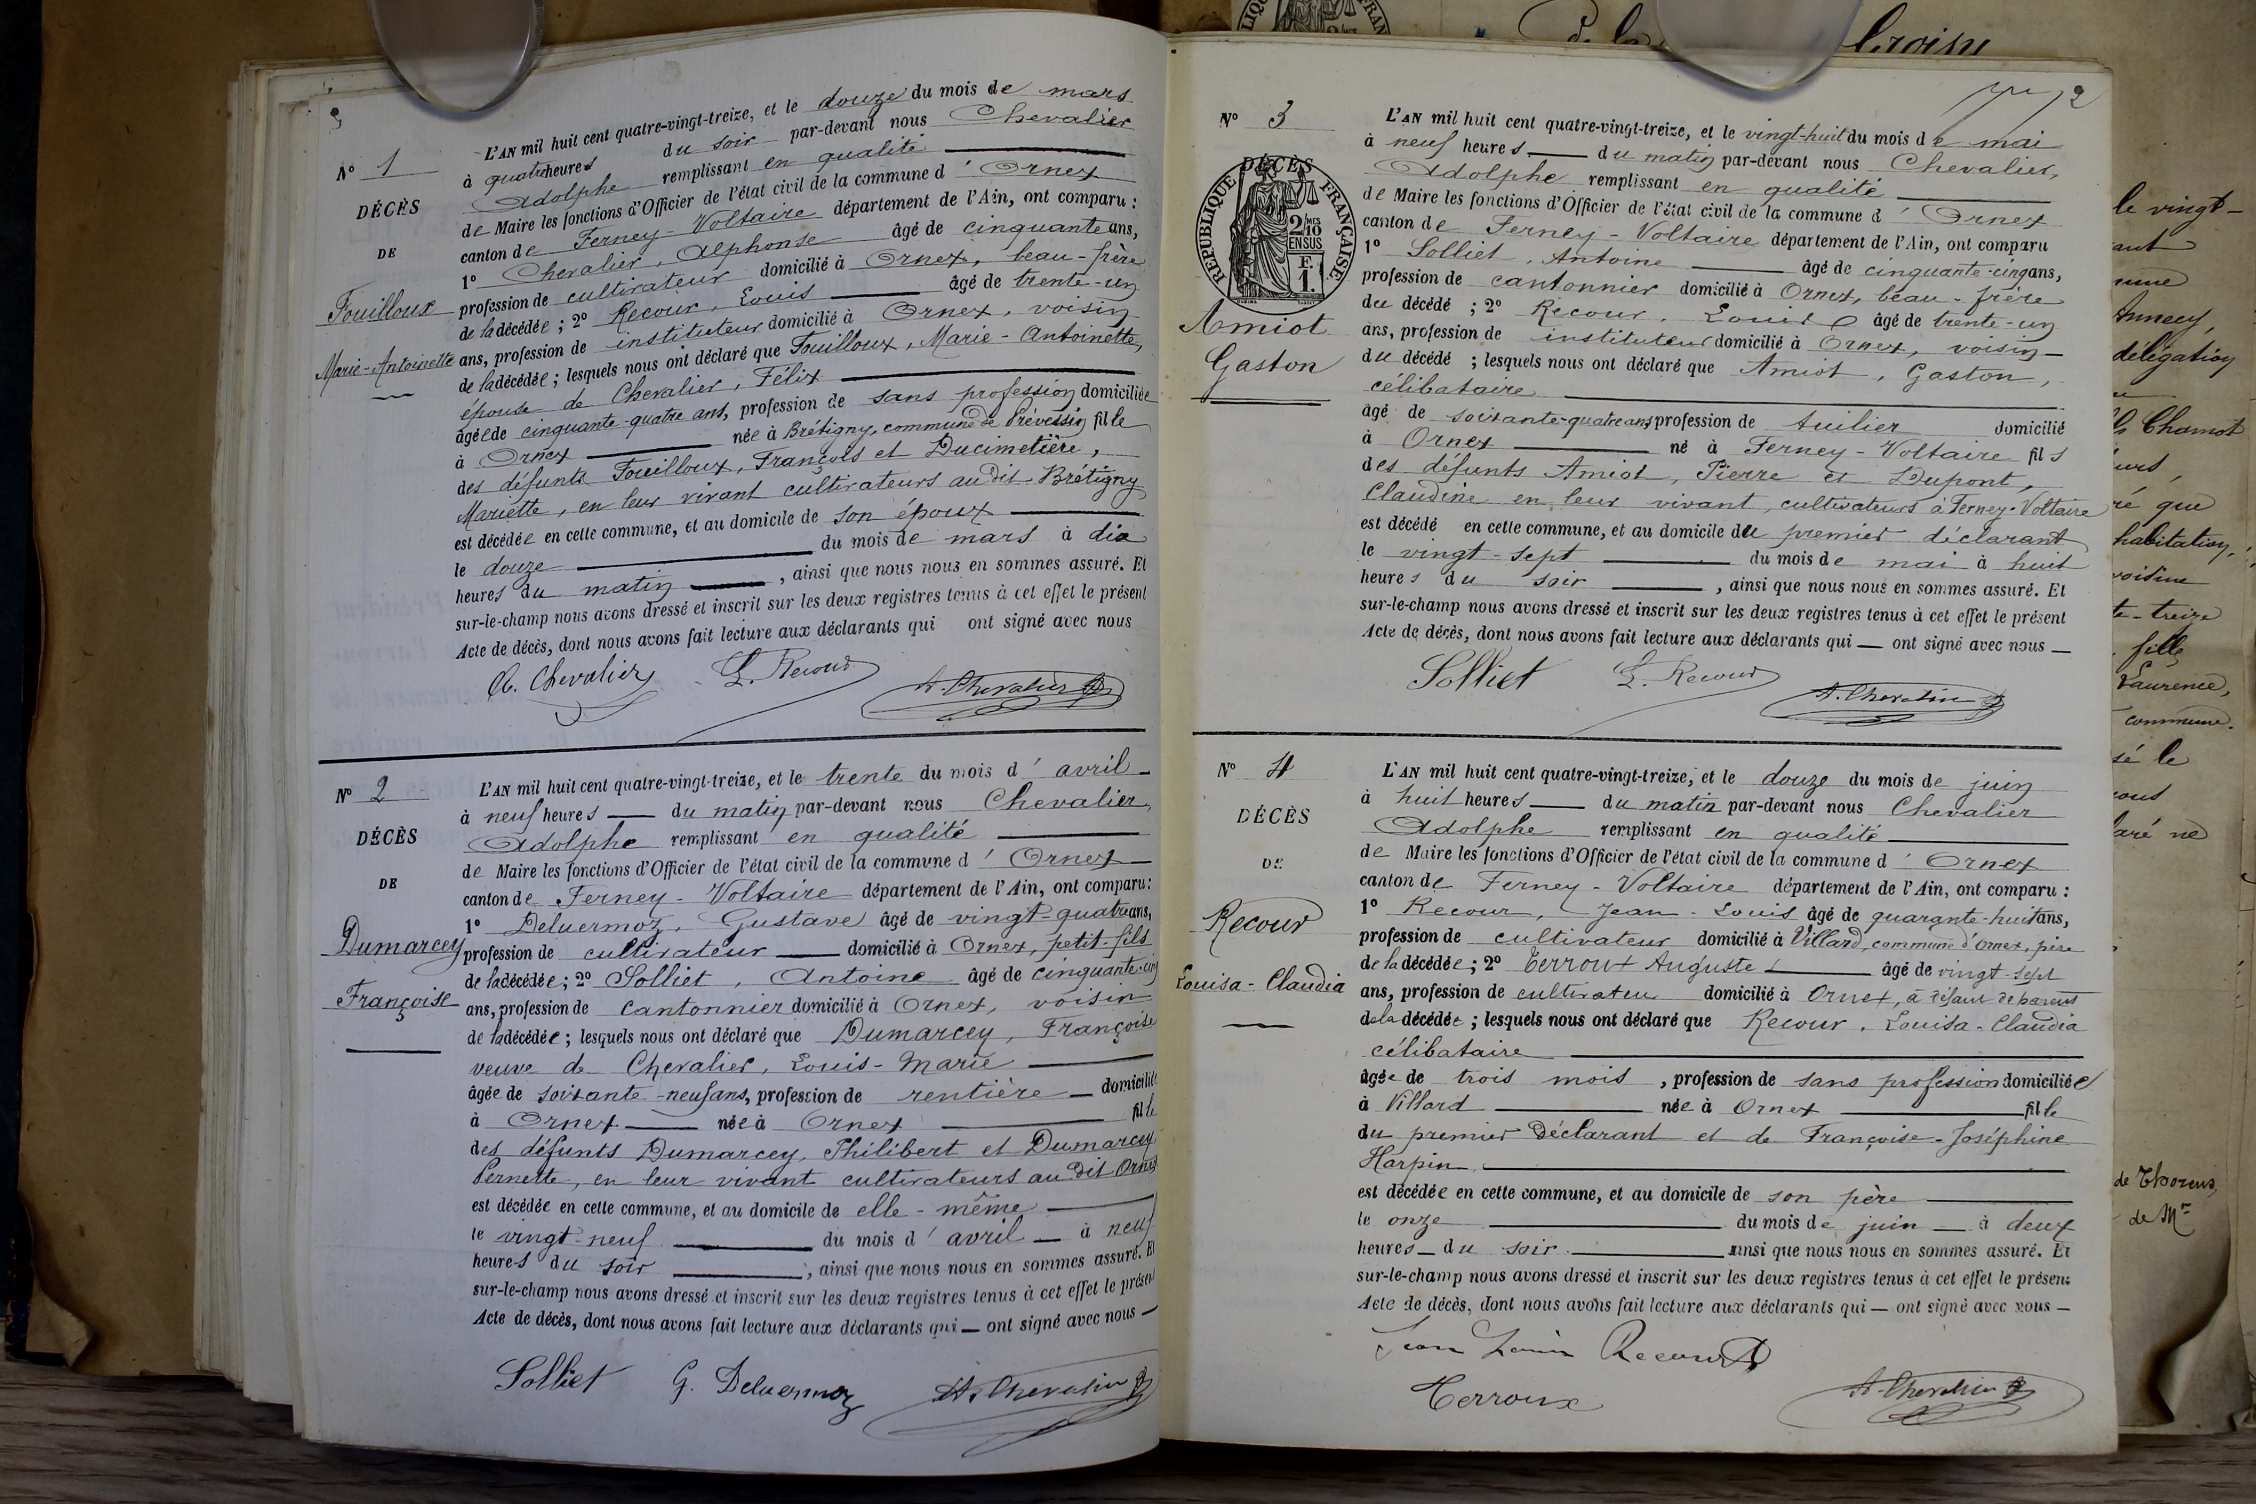 N° 1
DÉCÈS
DE
Fouilloux
Marie-Antoinette
L'AN mil huit cent quatre-vingt-treize, et le douze du mois de mars
à quatre heures du soir par-devant nous Chevalier
Adolphe remplissant en qualité
de Maire les fonctions d'Officier de l'état civil de la commune d'Ornex
canton de Ferney-Voltaire département de l'Ain, ont comparu :
1° Chevalier, Alphonse âgé de cinquante ans,
profession de cultivateur domicilié à Ornex, beau-frère
de la décédée ; 2° Recour, Louis âgé de trente-un
ans, profession de instituteur domicilié à Ornex, voisin
de la décédée ; lesquels nous ont déclaré que Fouilloux, Marie-Antoinette,
épouse de Chevalier, Félix
âgée de cinquante-quatre ans, profession de sans profession domiciliée
à Ornex née à Brétigny, commune de Prévessin fille
des défunts Fouilloux, François et Ducimetière,
Mariette, en leur vivant cultivateurs au dit Brétigny
est décédée en cette commune, et au domicile de son époux
le douze du mois de mars à dix
heures du matin, ainsi que nous nous en sommes assuré. Et
sur-le-champ nous avons dressé et inscrit sur les deux registres tenus à cet effet le présent
Acte de décès, dont nous avons fait lecture aux déclarants qui ont signé avec nous
A. Chevalier L. Recour A. Chevalier
N° 2
DÉCÈS
DE
Dumarcey
Françoise
L'AN mil huit cent quatre-vingt-treize, et le trente du mois d'avril
à neuf heures du matin par-devant nous Chevalier,
Adolphe remplissant en qualité
de Maire les fonctions d'Officier de l'état civil de la commune d'Ornex
canton de Ferney-Voltaire département de l'Ain, ont comparu :
1° Deluermoz, Gustave âgé de vingt-quatre ans,
profession de cultivateur domicilié à Ornex, petit-fils
de la décédée ; 2° Solliet, Antoine âgé de cinquante-cinq
ans, profession de cantonnier domicilié à Ornex, voisin
de la décédée ; lesquels nous ont déclaré que Dumarcey, Françoise
veuve de Chevalier, Louis-Marie
âgée de soixante-neuf ans, profession de rentière domiciliée
à Ornex née à Ornex fille
des défunts Dumarcey, Philibert et Dumarcey
Pernette, en leur vivant cultivateurs au dit Ornex
est décédée en cette commune, et au domicile de elle-même
le vingt-neuf du mois d'avril à neuf
heures du soir, ainsi que nous nous en sommes assuré. Et
sur-le-champ nous avons dressé et inscrit sur les deux registres tenus à cet effet le présent
Acte de décès, dont nous avons fait lecture aux déclarants qui ont signé avec nous
Solliet G. Deluermoz A. Chevalier
2
N° 3
DÉCÈS
RÉPUBLIQUE FRANÇAISE
2/10 MES
EN SUS
F.
1.
Amiot
Gaston
L'AN mil huit cent quatre-vingt-treize, et le vingt-huit du mois de mai
à neuf heures du matin par-devant nous Chevalier,
Adolphe remplissant en qualité
de Maire les fonctions d'Officier de l'état civil de la commune d'Ornex
canton de Ferney-Voltaire département de l'Ain, ont comparu
1° Solliet, Antoine âgé de cinquante-cinq ans,
profession de cantonnier domicilié à Ornex, beau-frère
du décédé ; 2° Recour, Louis âgé de trente-un
ans, profession de instituteur domicilié à Ornex, voisin
du décédé ; lesquels nous ont déclaré que Amiot, Gaston,
célibataire
âgé de soixante-quatre ans profession de tuilier domicilié
à Ornex né à Ferney-Voltaire fils
des défunts Amiot, Pierre et Dupont,
Claudine en leur vivant, cultivateurs à Ferney-Voltaire
est décédé en cette commune, et au domicile du premier déclarant
le vingt-sept du mois de mai à huit
heures du soir, ainsi que nous nous en sommes assuré. Et
sur-le-champ nous avons dressé et inscrit sur les deux registres tenus à cet effet le présent
Acte de décès, dont nous avons fait lecture aux déclarants qui ont signé avec nous
Solliet L. Recour A. Chevalier
N° 4
DÉCÈS
DE
Recour
Louisa-Claudia
L'AN mil huit cent quatre-vingt-treize, et le douze du mois de juin
à huit heures du matin par-devant nous Chevalier
Adolphe remplissant en qualité
de Maire les fonctions d'Officier de l'état civil de la commune d'Ornex
canton de Ferney-Voltaire département de l'Ain, ont comparu :
1° Recour, Jean-Louis âgé de quarante-huit ans,
profession de cultivateur domicilié à Villard, commune d'Ornex, père
de la décédée ; 2° Terroux Auguste âgé de vingt-sept
ans, profession de cultivateur domicilié à Ornex, à défaut de parents
de la décédée ; lesquels nous ont déclaré que Recour, Louisa-Claudia
célibataire
âgée de trois mois, profession de sans profession domiciliée
à Villard née à Ornex fille
du premier déclarant et de Françoise-Joséphine
Harpin
est décédée en cette commune, et au domicile de son père
le onze du mois de juin à deux
heures du soir ainsi que nous nous en sommes assuré. Et
sur-le-champ nous avons dressé et inscrit sur les deux registres tenus à cet effet le présent
Acte de décès, dont nous avons fait lecture aux déclarants qui ont signé avec nous
Jean Louis Recour
Terroux A. Chevalier
le vingt-
Annecy,
délégation
Chamot
que
habitation,
voisine
te-treize
fille
Laurence,
commune.
sé le
ne
de Thorens,
de Mr